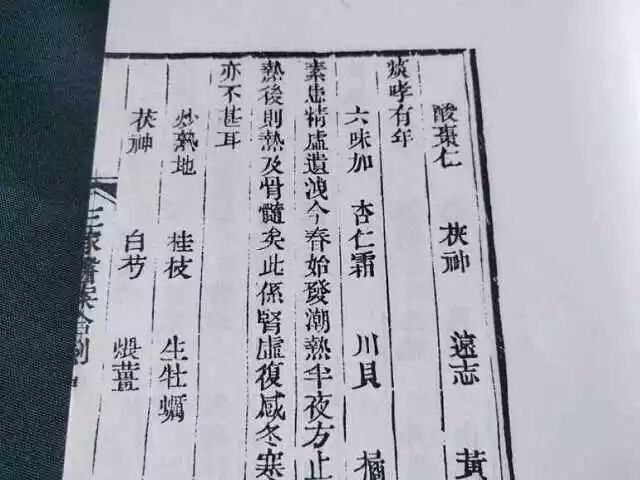 酸棗仁 茯神 遠志 黃
痰哮有年
六味加 杏仁霜 川貝 橘
素患精虛遺洩今春始發潮熱半夜方止
熱後則熱及骨髓矣此係腎虛復感冬寒
亦不甚耳
炒熟地 桂枝 生牡蠣
茯神 白芍 煨薑
三家醫案合刻